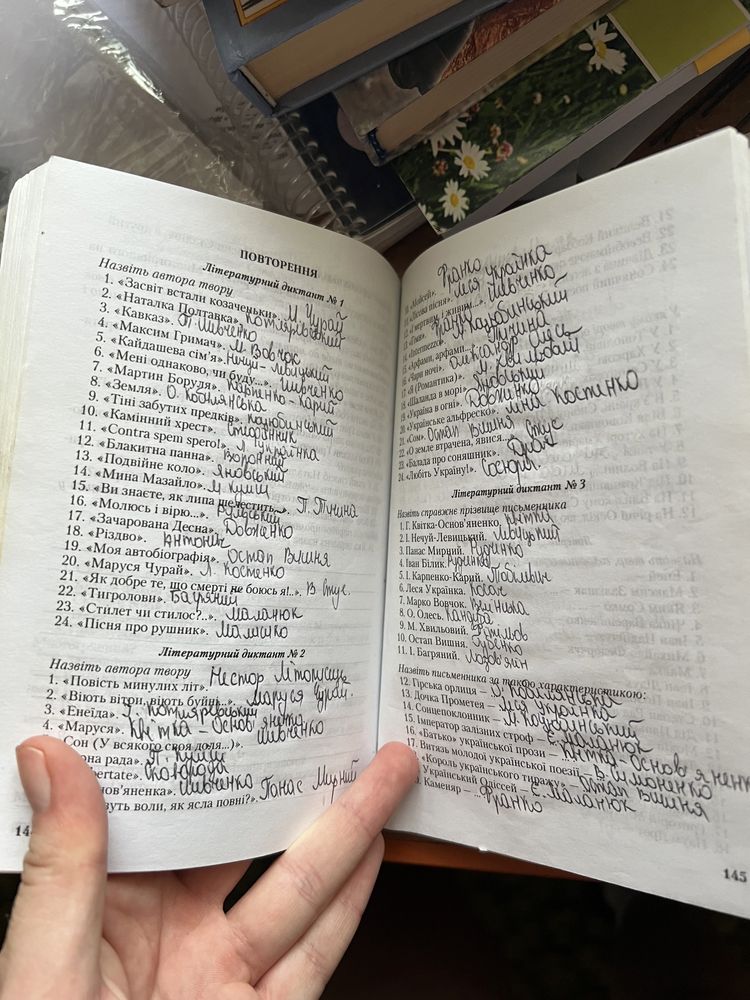 ПОВТОРЕННЯ
Літературний диктант № 1
Назвіть автора твору
1. «Засвіт встали козаченьки». М Чурай
2. «Наталка Полтавка». Котляревський
3. «Кавказ». Т. Шевченко
4. «Максим Гримач». М. Вовчок
5. «Кайдашева сім'я». Нечуй-Левицький
6. «Мені однаково, чи буду...». Шевченко
7. «Мартин Боруля». Карпенко-Карий
8. «Земля». О. Кобилянська
9. «Тіні забутих предків». Коцюбинський
10. «Камінний хрест». Стефаник
11. «Contra spem spero!». Л. Українка
12. «Блакитна панна». Вороний
13. «Подвійне коло». Яновський
14. «Мина Мазайло». М. Куліш
15. «Ви знаєте, як липа шелестить...». П. Тичина
16. «Молюсь і вірю...».
17. «Зачарована Десна». Довженко
18. «Різдво». Антонич
19. «Моя автобіографія». Остап Вишня
20. «Маруся Чурай». Л. Костенко
21. «Як добре те, що смерті не боюсь я!..». В Стус.
22. «Тигролови». Багряний
23. «Стилет чи стилос?..». Маланюк
24. «Пісня про рушник». Малишко
Літературний диктант № 2
Назвіть автора твору
1. «Повість минулих літ». Нестор Літописець
2. «Віють вітри, віють буйні...». Маруся Чурай.
3. «Енеїда». І. Котляревський
4. «Маруся». Квітка-Основ'янтка
Сон (У всякого своя доля...)». Шевченко
рна рада». П. Куліш
bertate». Сковорода
нов'яненка». Шевченко
вуть воли, як ясла повні?». Панас Мирний
144
11. «Мойсей». Франко
12. «Лісова пісня». Леся Українка
13. «І мертвим, і живим...». Шевченко
14. «Гімн». Франко
15. «Intermezzo». М. Коцюбинський
16. «Арфами, арфами...». Тичина
17. «Чари ночі». Олександр Олесь
18. «Я (Романтика)». М. Хвильовий
18. «Шаланда в морі». Яновський
19. «Україна в огні». Довженко
20. «Українське альфреско». Ліна Костенко
21. «Сом». Остап Вишня
22. «О земле втрачена, явися...». Стус
23. «Балада про соняшник». Драч
24. «Любіть Україну!». Сосюра.
Літературний диктант № 3
Назвіть справжнє прізвище письменника
1. Г. Квітка-Основ'яненко. Квітка
2. І. Нечуй-Левицький. Левицький
3. Панас Мирний. Рудченко
4. Іван Білик. Рудченко
5. І. Карпенко-Карий. Тобілевич
6. Леся Українка. Косач
7. Марко Вовчок. Вілінська
8. О. Олесь. Кандиба
9. М. Хвильовий. Фітільов
10. Остап Вишня. Губенко
11. І. Багряний. Лозов'ягін
Назвіть письменника за такою характеристикою:
12. Гірська орлиця – О. Кобилянська
13. Дочка Прометея – Леся Українка
14. Сонцепоклонник – М. Коцюбинський
15. Імператор залізних строф – Є. Маланюк
16. «Батько» української прози – Квітка-Основ'яненко
17. Витязь молодої української поезії – В. Симоненко
«Король українського тиражу» – Остап Вишня
Український Одіссей – Є. Маланюк
Каменяр – Франко
145